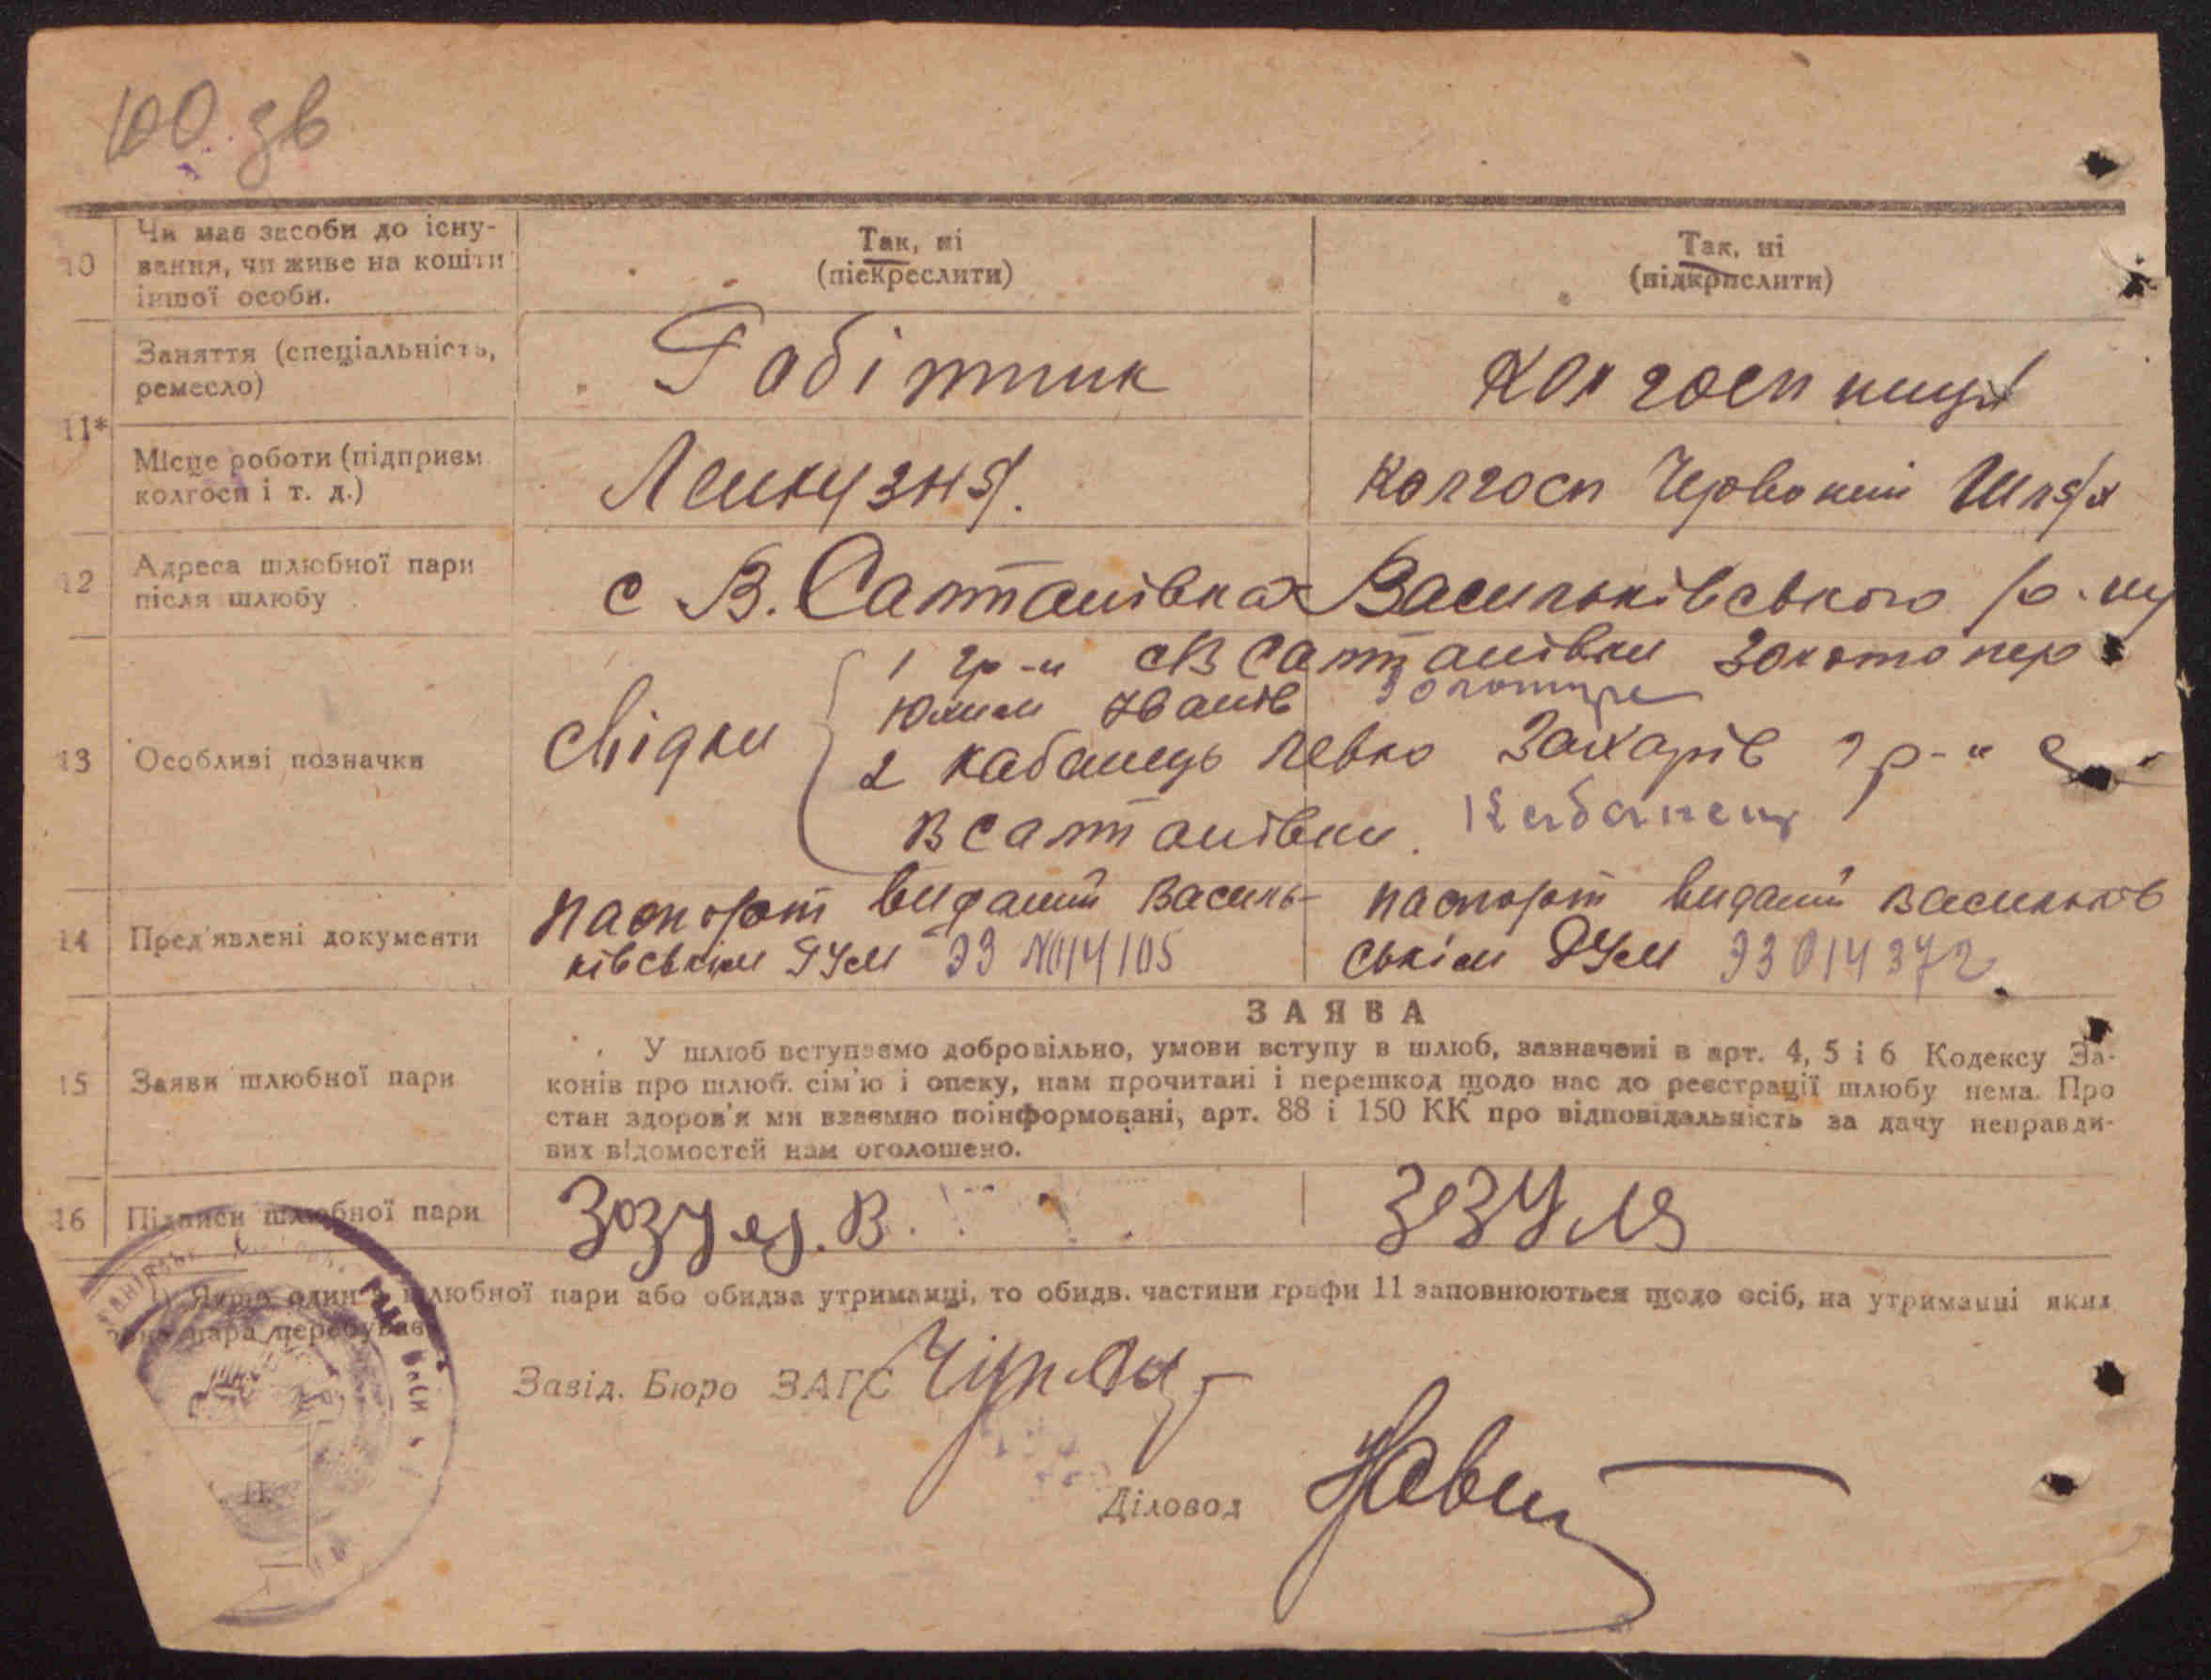 100 зв
10
Чи має засоби до існу-
вання, чи живе на кошти
іншої особи.
Так, ні
(піекреслити)
Так, ні
(підкрпслити)
11*
Заняття (спеціальність,
ремесло)
Робітник
Колгоспниця
Місце роботи (підприєм
колгосп і т. д.)
Ленкузня.
Колгосп Червоний Шлях
12
Адреса шлюбної пари
після шлюбу
с В. Салтанівка Васильківського р-ну
13
Особливі позначки
свідки
1 гр-н с В Салтанівки Золотопер
Юхим Іванів
2 Кабанець Левко Захарів гр-н с
В Салтанівки. Кабанець
14
Пред'явлені документи
паспорт виданий Василь-
ківським РУМ ЭЗ №014105
паспорт виданий Васильків
ським РУМ ЭЗ 014372
15
Заяви шлюбної пари
ЗАЯВА
У шлюб вступаємо добровільно, умови вступу в шлюб, зазначені в арт. 4, 5 і 6 Кодексу За-
конів про шлюб. сім'ю і опеку, нам прочитані і перешкод щодо нас до реєстрації шлюбу нема. Про
стан здоров'я ми взаємно поінформовані, арт. 88 і 150 КК про відповідальність за дачу неправди-
вих відомостей нам оголошено.
16
Підписи шлюбної пари
Зозуля. В.
Зозуля
1) Якщо один з шлюбної пари або обидва утриманці, то обидв. частини графи 11 заповнюються щодо осіб, на утриманні яких
пара перебуває
Завід. Бюро ЗАГС
Діловод